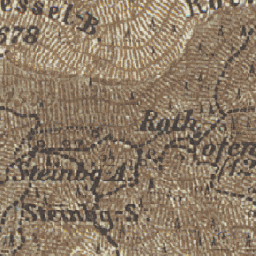 essel-B.
678
Roth
ofen
Steinbg-A.
Steinbg-S